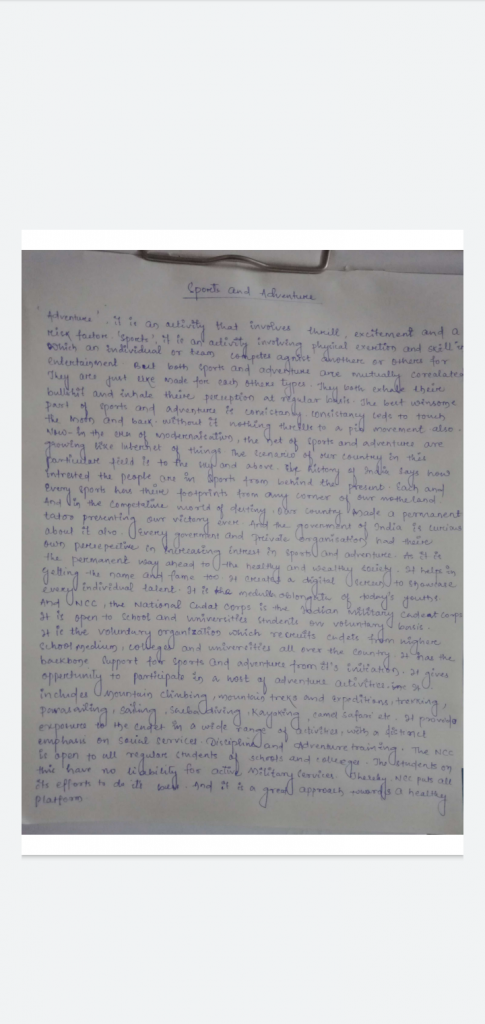 Sports and Adventure
Adventures'. it is an activity that involves thrill, excitement and a
risk factor 'sports', it is an activity involving physical exertion and skill in
which an individual or team competes against another or others for
Entertainment. But both sports and adventure are mutually correlated
They are just like made for each others types. They both exhale their
and inhale their at regular basis. The best winsome
part of sports and adventure is consistancy consistancy leds to touch
the and back without it nothing to a pin movement also.
Now in the era of modernisation, the net of sports and adventures are
growing like internet of things. The scenario of our country in this
particular field is to the beyond above. The history of India says how
intrested the people are in sports from behind the present. Each and
Every sports has their footprints from any corner of our motherland
And in the competative world of destiny, our country made a permanent
presenting our victory ever. And the government of India is curious
about it also. Every goverment and Private organization had their
own perespective in increasing intrest in sports and adventure. As it is
the permanent way ahead to the healthy and wealthy society. It helps in
getting the name and fame too. It creates a digital to showcase
every individual talent. It is the medulla oblongata of today's youths
And NCC, the National Cadet Corps is the Indian military cadet corps
It is open to school and universities students on voluntary basis.
It is the voluntary organization which recruits cadets from higher
school medium, colleges and universities all over the country. It has the
backbone support for sports and adventure from it's initiation. It gives
opportunity to participate in a host of adventure activities. It
includes Mountain climbing, mountain treks and expeditions, trekking,
parasailing, sailing, scuba diving, Kayaking, camel safari etc. It provide
exposure to the cadet in a wide range of activites, with a distinct
emphasis on Social Services, Discipline and Adventure training. The NCC
is open to all regular students of schools and college. The students on
this have no liability for active Military Services. Thereby, NCC puts all
its efforts to do its best. And it is a great approach towards a healthy
platform